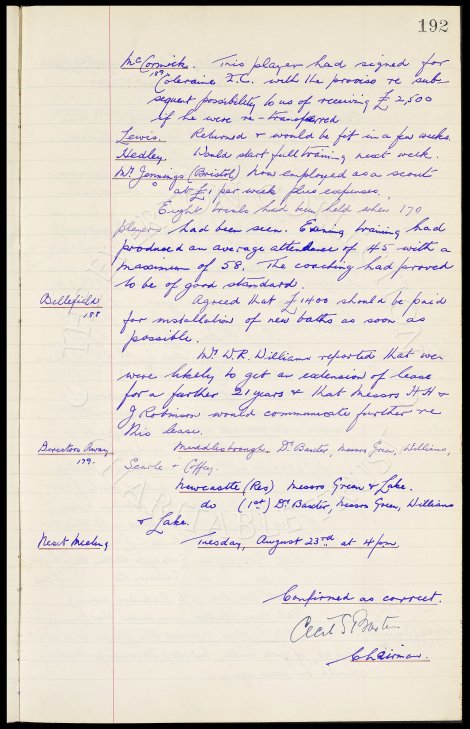 192
McCormick. This player had signed for
189 Coleraine F.C. with the proviso re sub-
sequent possibility to us of receiving £2,500
if he were re-transferred
Lewis. Returned & would be fit in a few weeks.
Hedley. Would start full training next week.
Mr Jennings (Bristol) now employed as a scout
at £1 per week plus expenses.
Eight trials had been held when 170
players had been seen. Evening training had
produced an average attendance of 45 with a
maximum of 58. The coaching had proved
to be of good standard.
Bellefield Agreed that £1400 should be paid
188 for installation of new baths as soon as
possible.
Mr W.R. Williams reported that we
were likely to get an extension of lease
for a further 21 years & that Messrs H H &
J Robinson would communicate further re
this lease.
Directors Away Middlesbrough. Dr Baxter, Messrs Green, Williams,
179. Searle & Coffey.
Newcastle (Res) Messrs Green & Lake.
do (1st) Dr Baxter, Messrs Green, Williams
& Lake.
Next Meeting Tuesday, August 23rd at 4pm.
Confirmed as correct.
Cecil S Baxter
Chairman.